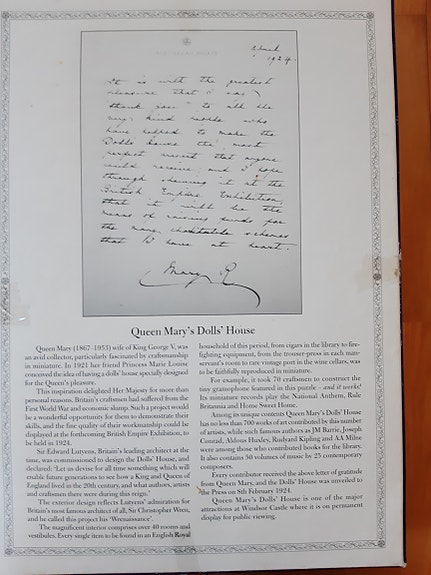 March
1924.
It is with the greatest
pleasure that I say
"thank you" to all the
very kind people who
have helped to make the
Dolls' house the most
perfect present that anyone
could receive, and I hope
through showing it at the
British Empire Exhibition,
that it will be the
means of raising funds for
the many charitable schemes
that I have at heart.
Mary R
Queen Mary's Dolls' House
Queen Mary (1867-1953) wife of King George V, was
an avid collector, particularly fascinated by craftsmanship
in miniature. In 1921 her friend Princess Marie Louise
conceived the idea of having a dolls' house specially designed
for the Queen's pleasure.
This inspiration delighted Her Majesty for more than
personal reasons. Britain's craftsmen had suffered from the
First World War and economic slump. Such a project would
be a wonderful opportunity for them to demonstrate their
skills, and the fine quality of their workmanship could be
displayed at the forthcoming British Empire Exhibition, to
be held in 1924.
Sir Edward Lutyens, Britain's leading architect at the
time, was commissioned to design the Dolls' House, and
declared: 'Let us devise for all time something which will
enable future generations to see how a King and Queen of
England lived in the 20th century, and what authors, artists
and craftsmen there were during this reign.'
The exterior design reflects Lutyens' admiration for
Britain's most famous architect of all, Sir Christopher Wren,
and he called this project his 'Wrenaissance'.
The magnificent interior comprises over 40 rooms and
vestibules. Every single item to be found in an English Royal
household of this period, from cigars in the library to fire-
fighting equipment, from the trouser-press in each man-
servant's room to rare vintage port in the wine cellars, was
to be faithfully reproduced in miniature.
For example, it took 70 craftsmen to construct the
tiny gramophone featured in this puzzle - and it works!
Its miniature records play the National Anthem, Rule
Britannia and Home Sweet Home.
Among its unique contents Queen Mary's Dolls' House
has no less than 700 works of art contributed by this number
of artists, while such famous authors as JM Barrie, Joseph
Conrad, Aldous Huxley, Rudyard Kipling and AA Milne
were among those who contributed books for the library.
It also contains 50 volumes of music by 25 contemporary
composers.
Every contributor received the above letter of gratitude
from Queen Mary, and the Dolls' House was unveiled to
the Press on 8th February 1924.
Queen Mary's Dolls' House is one of the major
attractions at Windsor Castle where it is on permanent
display for public viewing.